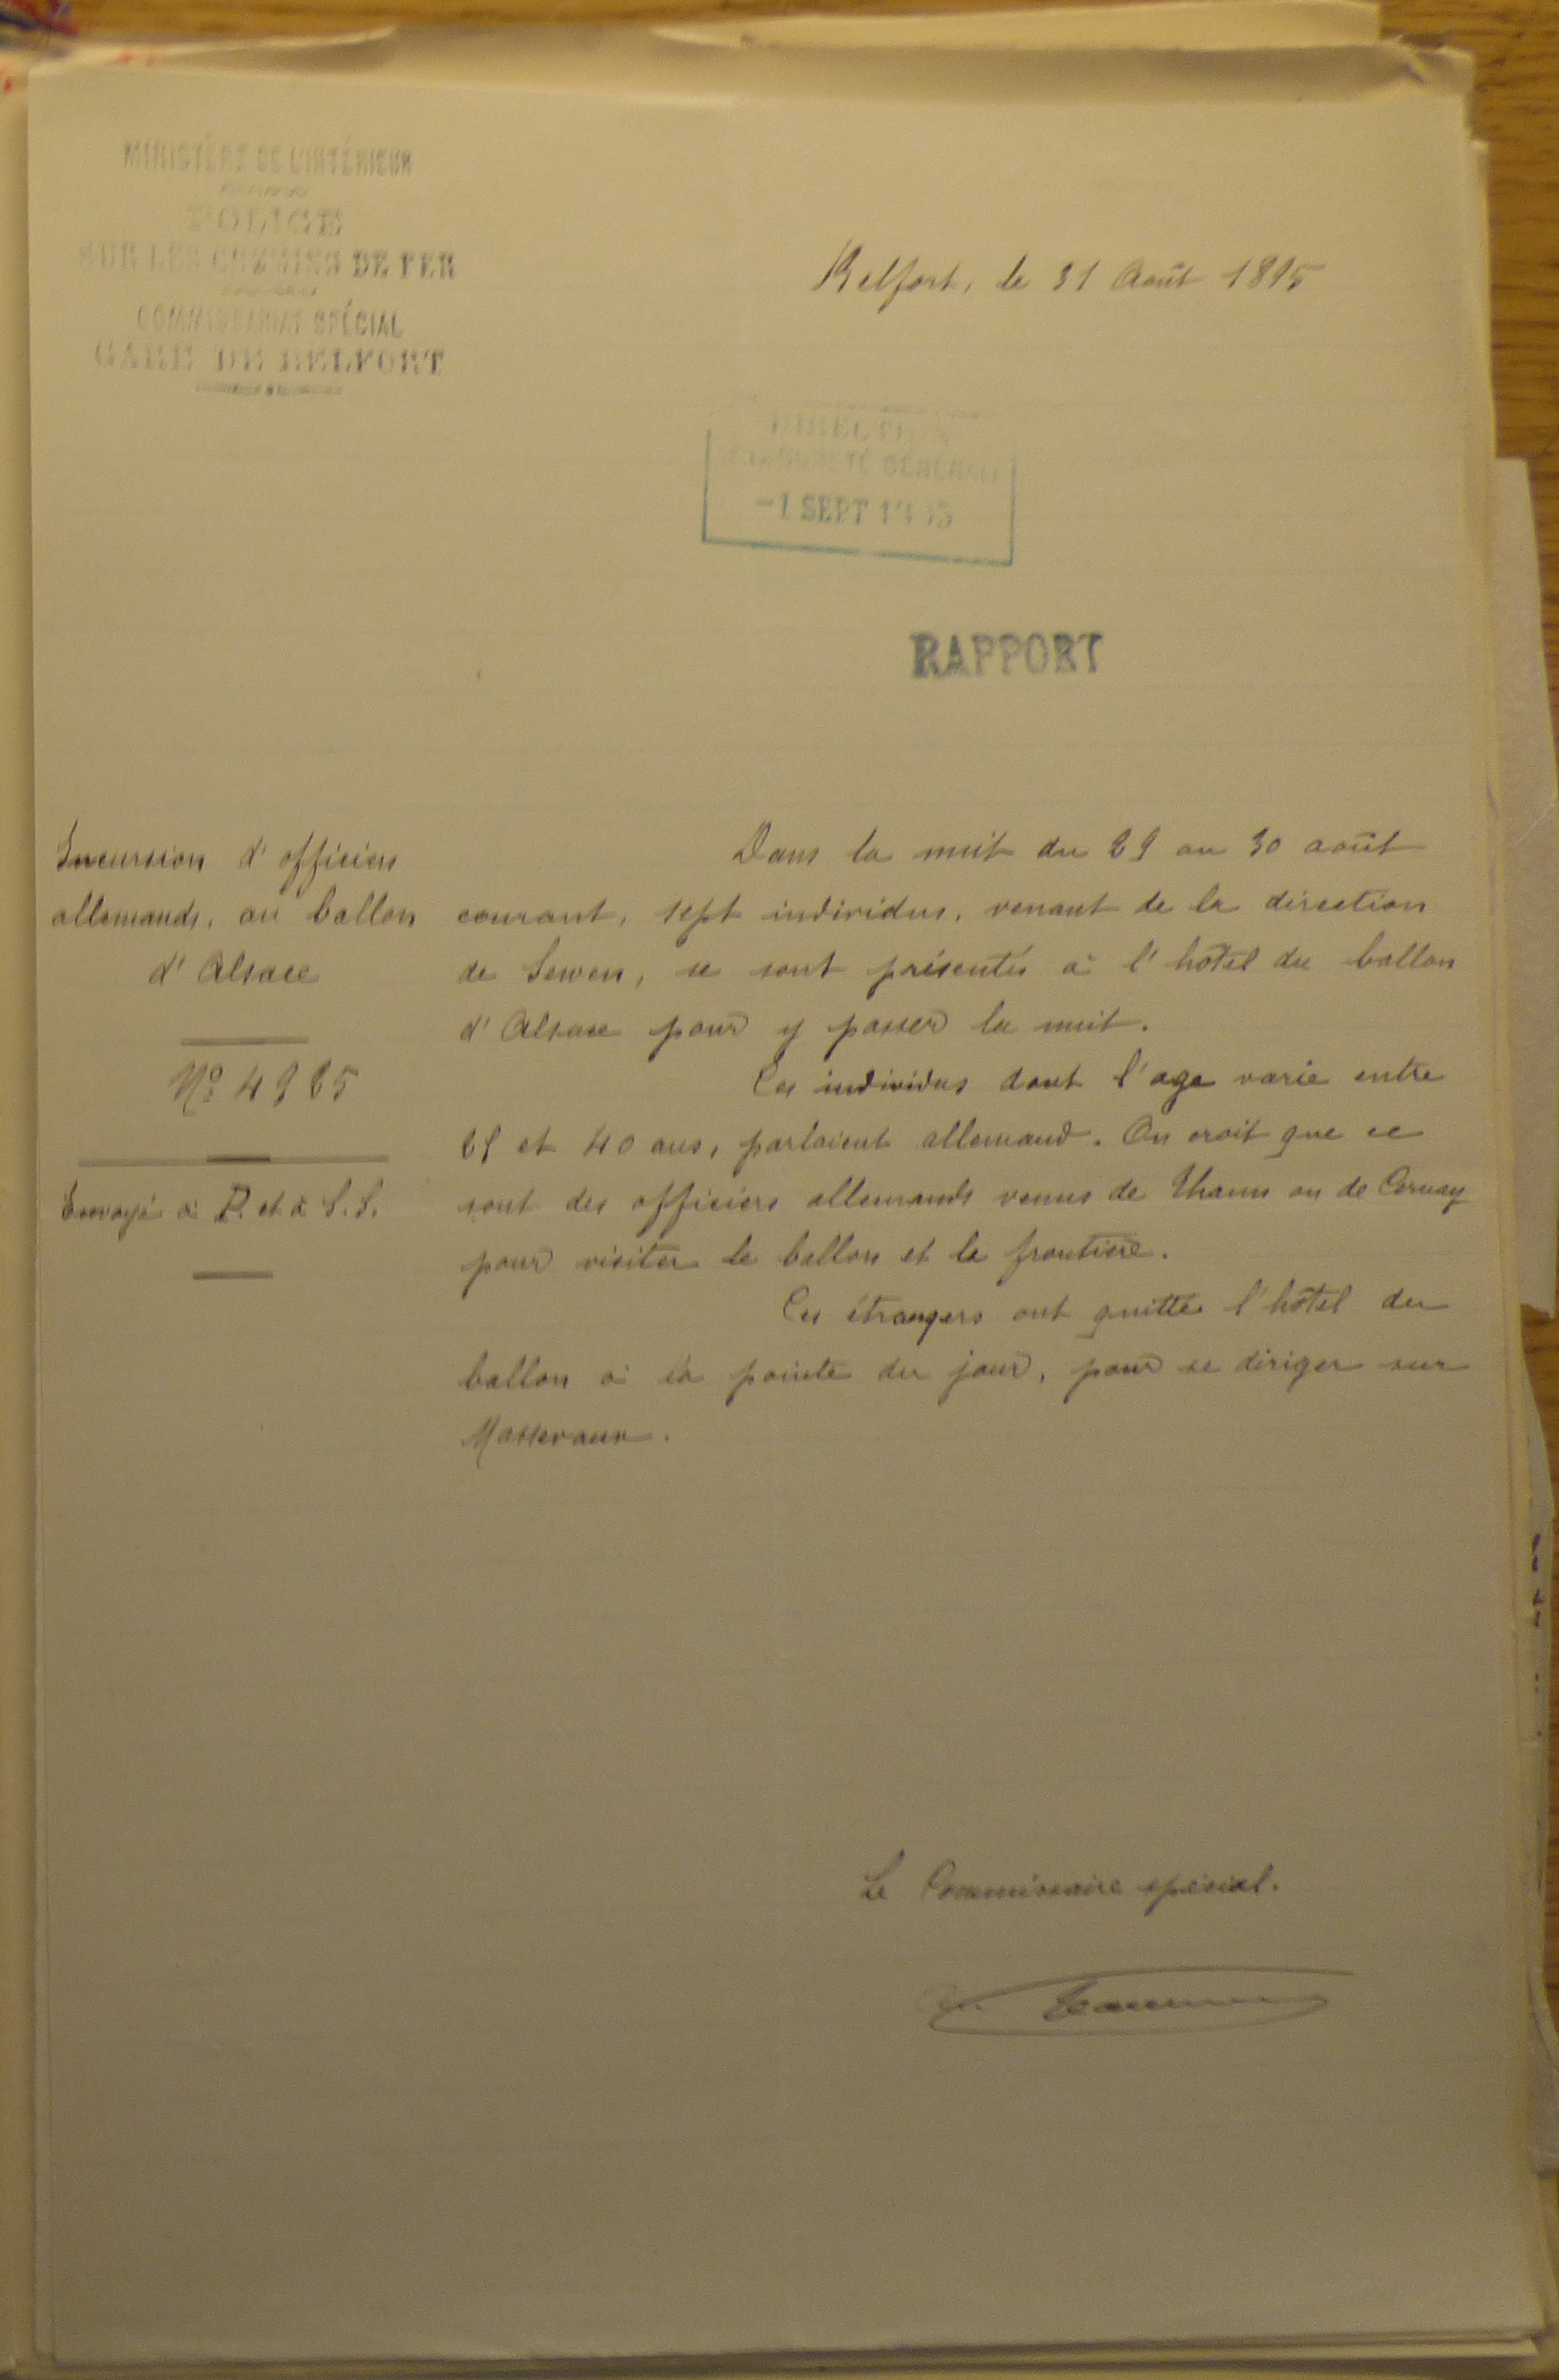 MINISTÈRE DE L'INTÉRIEUR
POLICE
SUR LES CHEMINS DE FER
COMMISSARIAT SPÉCIAL
GARE DE BELFORT
Belfort, le 31 Août 1895
DIRECTION
SURETÉ GÉNÉRALE
-1 SEPT 1895
RAPPORT
Incursion d'officiers
allemands, au ballon
d'Alsace
Nº 4925
Envoyé à P. et à S.S.
Dans la nuit du 29 au 30 août
courant, sept individus, venant de la direction
de Sewen, se sont présentés à l'hôtel du ballon
d'Alsace pour y passer la nuit.
Ces individus dont l'age varie entre
25 et 40 ans, parlaient allemand. On croit que ce
sont des officiers allemands venus de Thann ou de Cernay
pour visiter le ballon et la frontière.
Ces étrangers ont quitté l'hôtel du
ballon à la pointe du jour, pour se diriger sur
Massevaux.
Le Commissaire spécial.